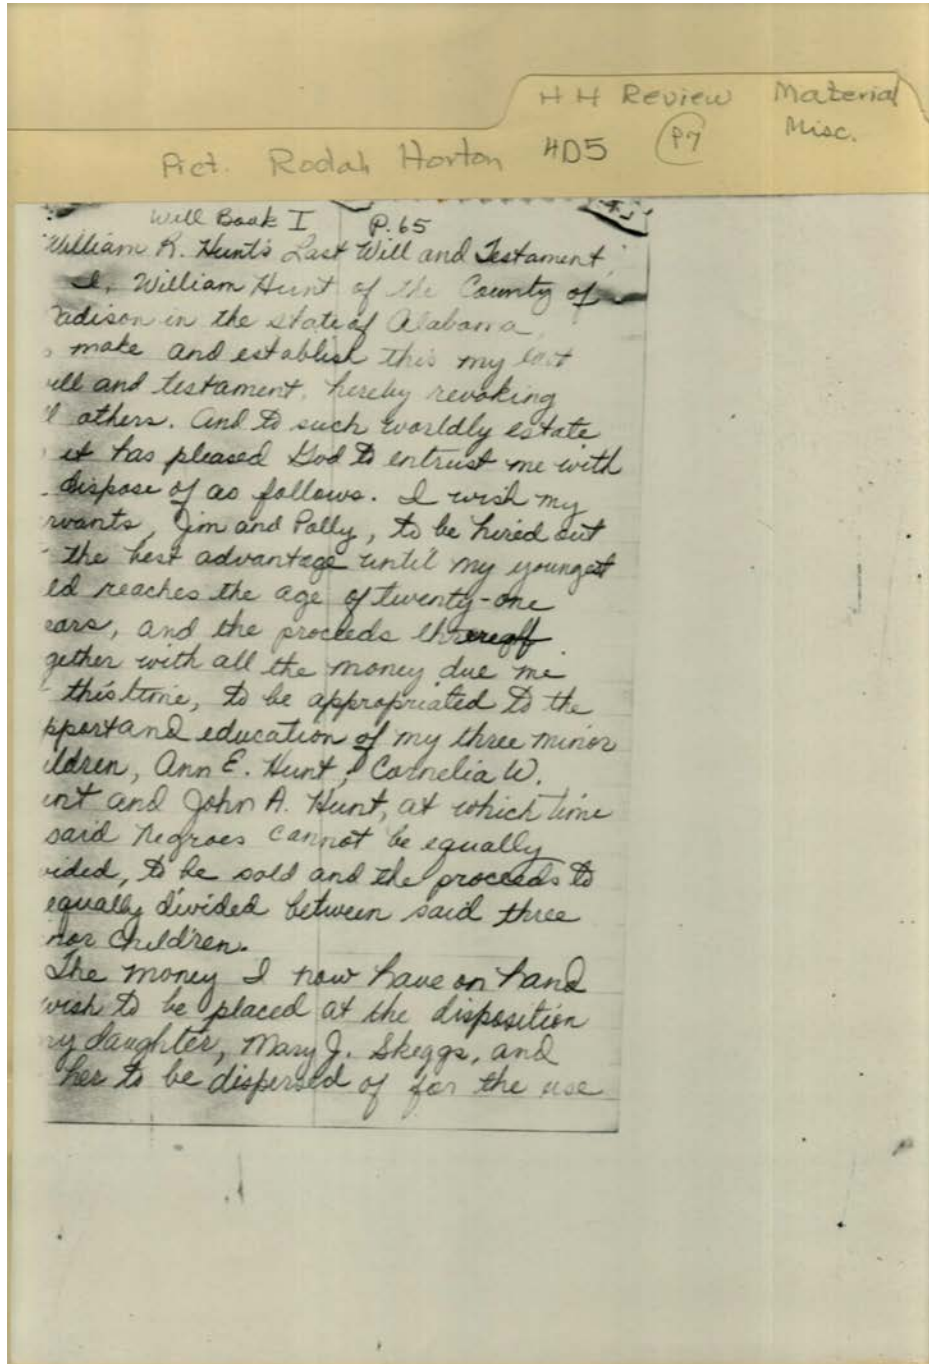 H H Review Material
Misc.
Pict. Rodah Horton 4D5 P7
Will Book I P.65
"William R. Hunt's Last Will and Testament"
I, William Hunt of the County of
adison in the state of Alabama,
make and establish this my last
ill and testament, hereby revoking
l others. And to such worldly estate
it has pleased God to entrust me with
dispose of as follows. I wish my
rvants, Jim and Polly, to be hired out
the best advantage until my youngest
ld reaches the age of twenty-one
ears, and the proceeds thereoff
gether with all the money due me
this time, to be appropriated to the
pport and education of my three minor
ildren, Ann E. Hunt, Cornelia W.
unt and John A. Hunt, at which time
said Negroes cannot be equally
vided, to be sold and the proceeds to
equally divided between said three
nor children.
The money I now have on hand
wish to be placed at the disposition
my daughter, Mary J. Skeggs, and
her to be dispersed of for the use